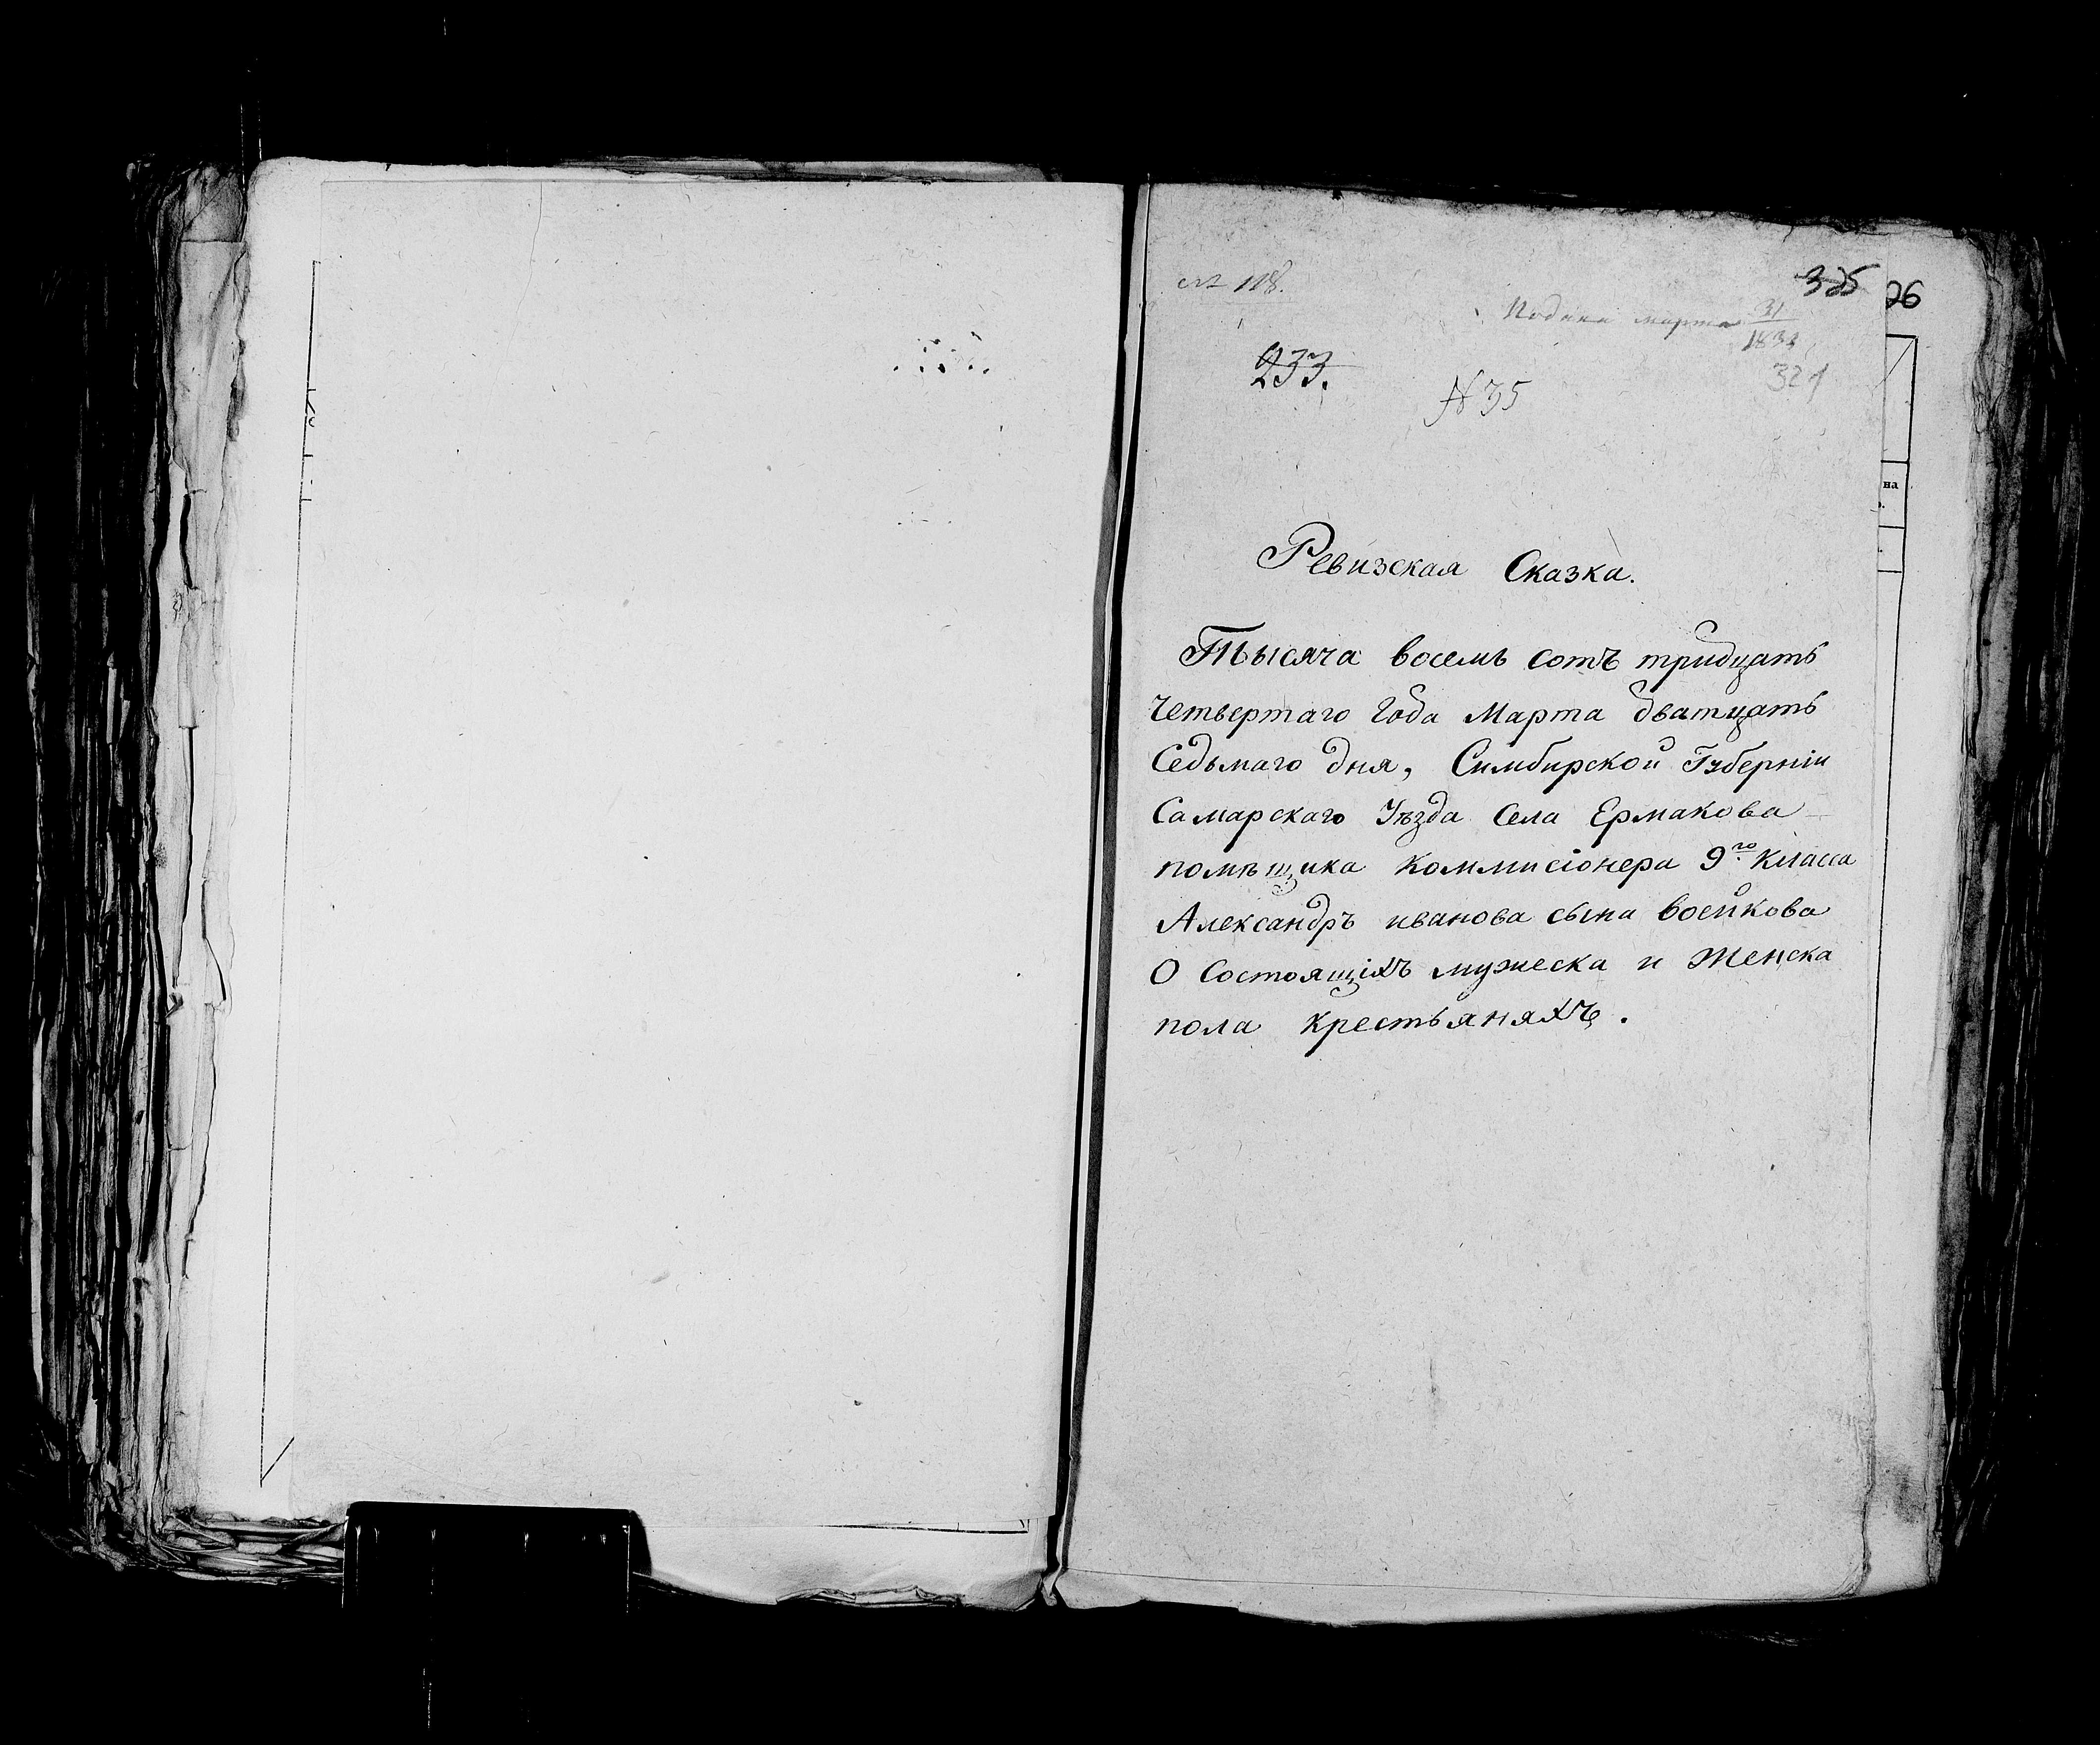 № 118.
325
26
Подана марта 31
1834
321
233.
N 35
на
Ревизская Сказка.
Тысяча восемь сотъ тридцать
четвертаго Года Марта дватцать
Седьмаго дня, Симбирской Губерніи
Самарскаго Уѣзда Села Ермакова
помѣщика Коммисіонера 9го Класса
Александръ иванова сына воейкова
О Состоящіхъ мужеска и Женска
пола крестьяняхъ.